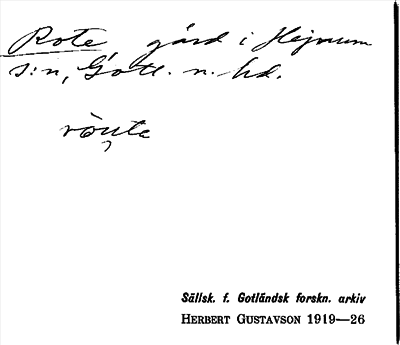 Rote, gård i Hejnum
s:n, Gotl. n. hd.
ròu̯te
Sällsk. f. Gotländsk forskn. arkiv
HERBERT GUSTAVSON 1919—26